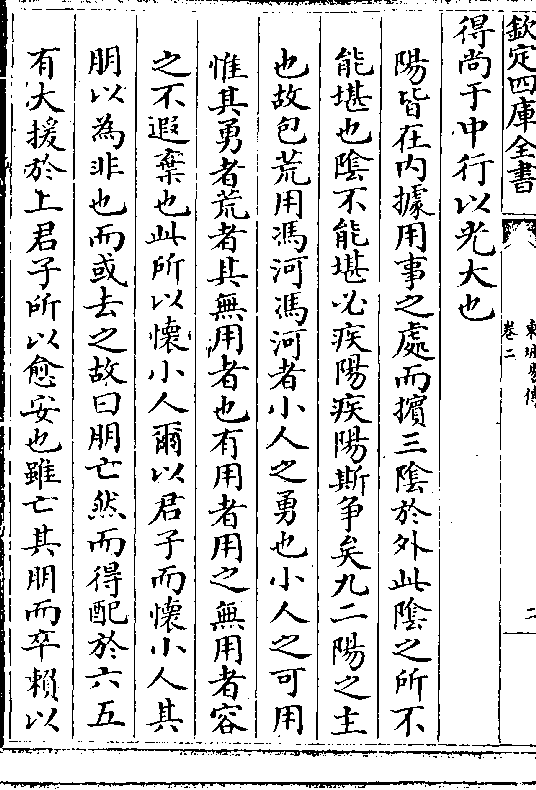 欽定四庫全書
卷二
得尚于中行以光大也
陽皆在内據用事之處而擯三陰於外此陰之所不
能堪也陰不能堪必疾陽疾陽斯争矣九二陽之主
也故包荒用馮河馮河者小人之勇也小人之可用
惟其勇者荒者其無用者也有用者用之無用者容
之不遐棄也此所以懷小人爾以君子而懷小人其
朋以為非也而或去之故曰朋亡然而得配於六五
有大援於上君子所以愈安也雖亡其朋而卒賴以